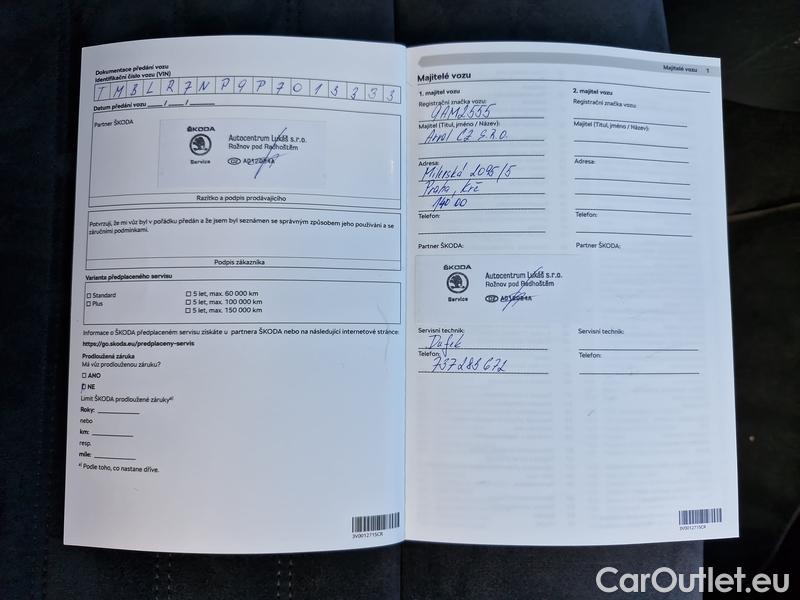 Dokumentace předání vozu
Identifikační číslo vozu (VIN)
T M B L R 7 N P 9 P 7 0 1 3 3 3 3
Datum předání vozu ____ / ____ / ______
Partner ŠKODA
ŠKODA
Service
Autocentrum Lukáš s.r.o.
Rožnov pod Radhoštěm
CZ
Razítko a podpis prodávajícího
Potvrzuji, že mi vůz byl v pořádku předán a že jsem byl seznámen se správným způsobem jeho používání a se
záručními podmínkami.
Podpis zákazníka
Varianta předplaceného servisu
☐ Standard
☐ Plus
☐ 5 let, max. 60 000 km
☐ 5 let, max. 100 000 km
☐ 5 let, max. 150 000 km
Informace o ŠKODA předplaceném servisu získáte u partnera ŠKODA nebo na následující internetové stránce:
https://go.skoda.eu/predplaceny-servis
Prodloužená záruka
Má vůz prodlouženou záruku?
☐ ANO
☐ NE
Limit ŠKODA prodloužené záruky a)
Roky: ________
nebo
km: ________
resp.
míle: ________
a) Podle toho, co nastane dříve.
3V0012715CR
Majitelé vozu 1
Majitelé vozu
1. majitel vozu
Registrační značka vozu:
Majitel (Titul, jméno / Název):
Arval CZ s.r.o.
Adresa:
2095/5
Praha, Krč
140 00
Telefon:
Partner ŠKODA:
ŠKODA
Service
Autocentrum Lukáš s.r.o.
Rožnov pod Radhoštěm
CZ
Servisní technik:
Telefon:
737 285 672
2. majitel vozu
Registrační značka vozu:
Majitel (Titul, jméno / Název):
Adresa:
Telefon:
Partner ŠKODA:
Servisní technik:
Telefon:
3V0012715CR
CarOutlet.eu